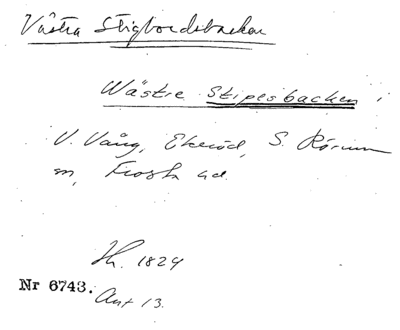 Västra Stigbordsbacken
Wästre Stipesbacken
V. Vång, Ekeröd, S. Rörum
m, Frosta hd.
Ht. 1824
Nr 6743.
Akt 13.